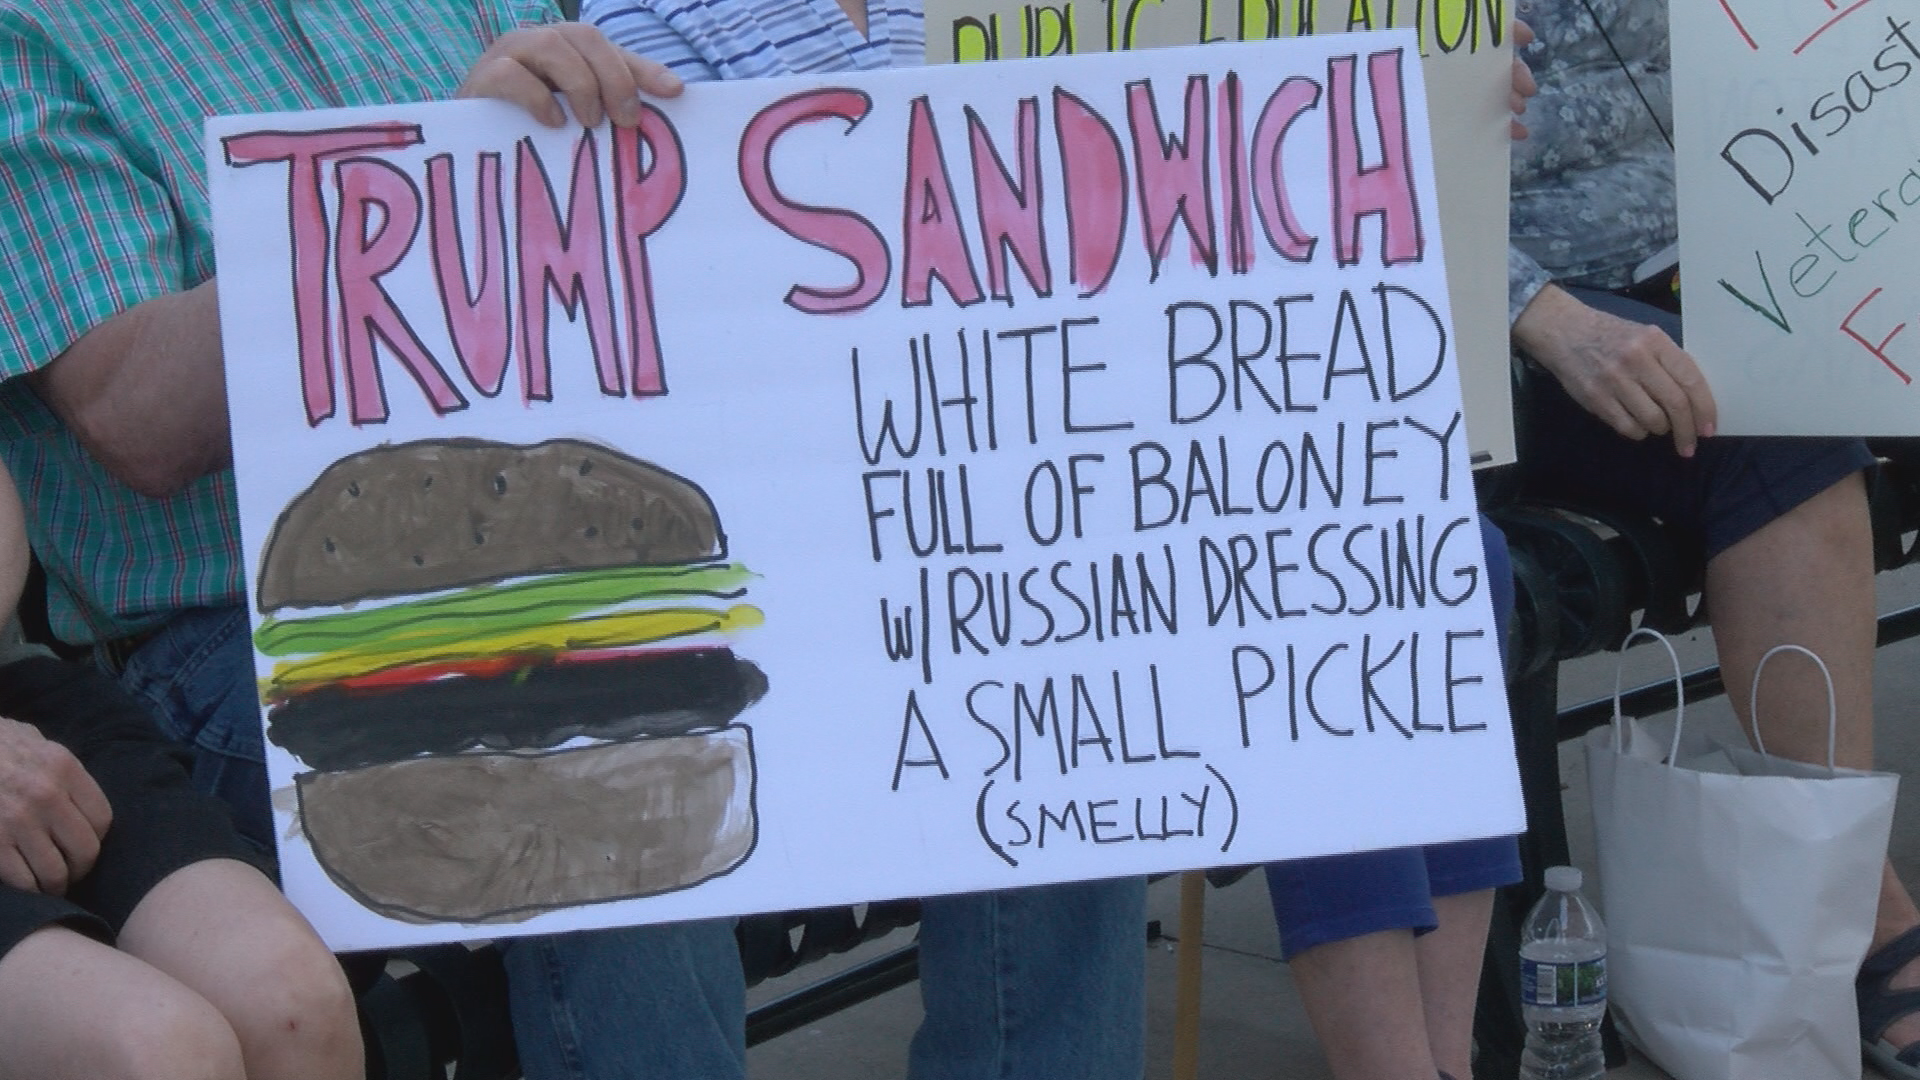 PUBLIC EDUCATION
TRUMP SANDWICH
WHITE BREAD
FULL OF BALONEY
W/ RUSSIAN DRESSING
A SMALL PICKLE
(SMELLY)